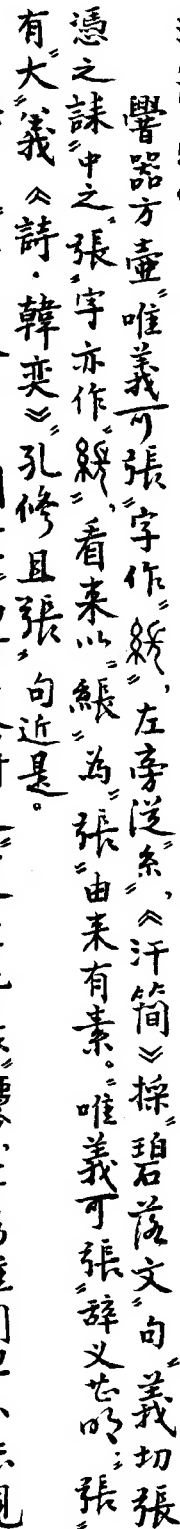 器方壶"唯義可張"字作" "，左旁從"糸"，《汗简》採"碧落文"句"義切張
憑之誄"中之"張"字亦作" "，看来以" "为"張"由来有素。"唯義可張"辞义甚明；"張"
有"大"義《詩·韓奕》"孔修且張"句近是。